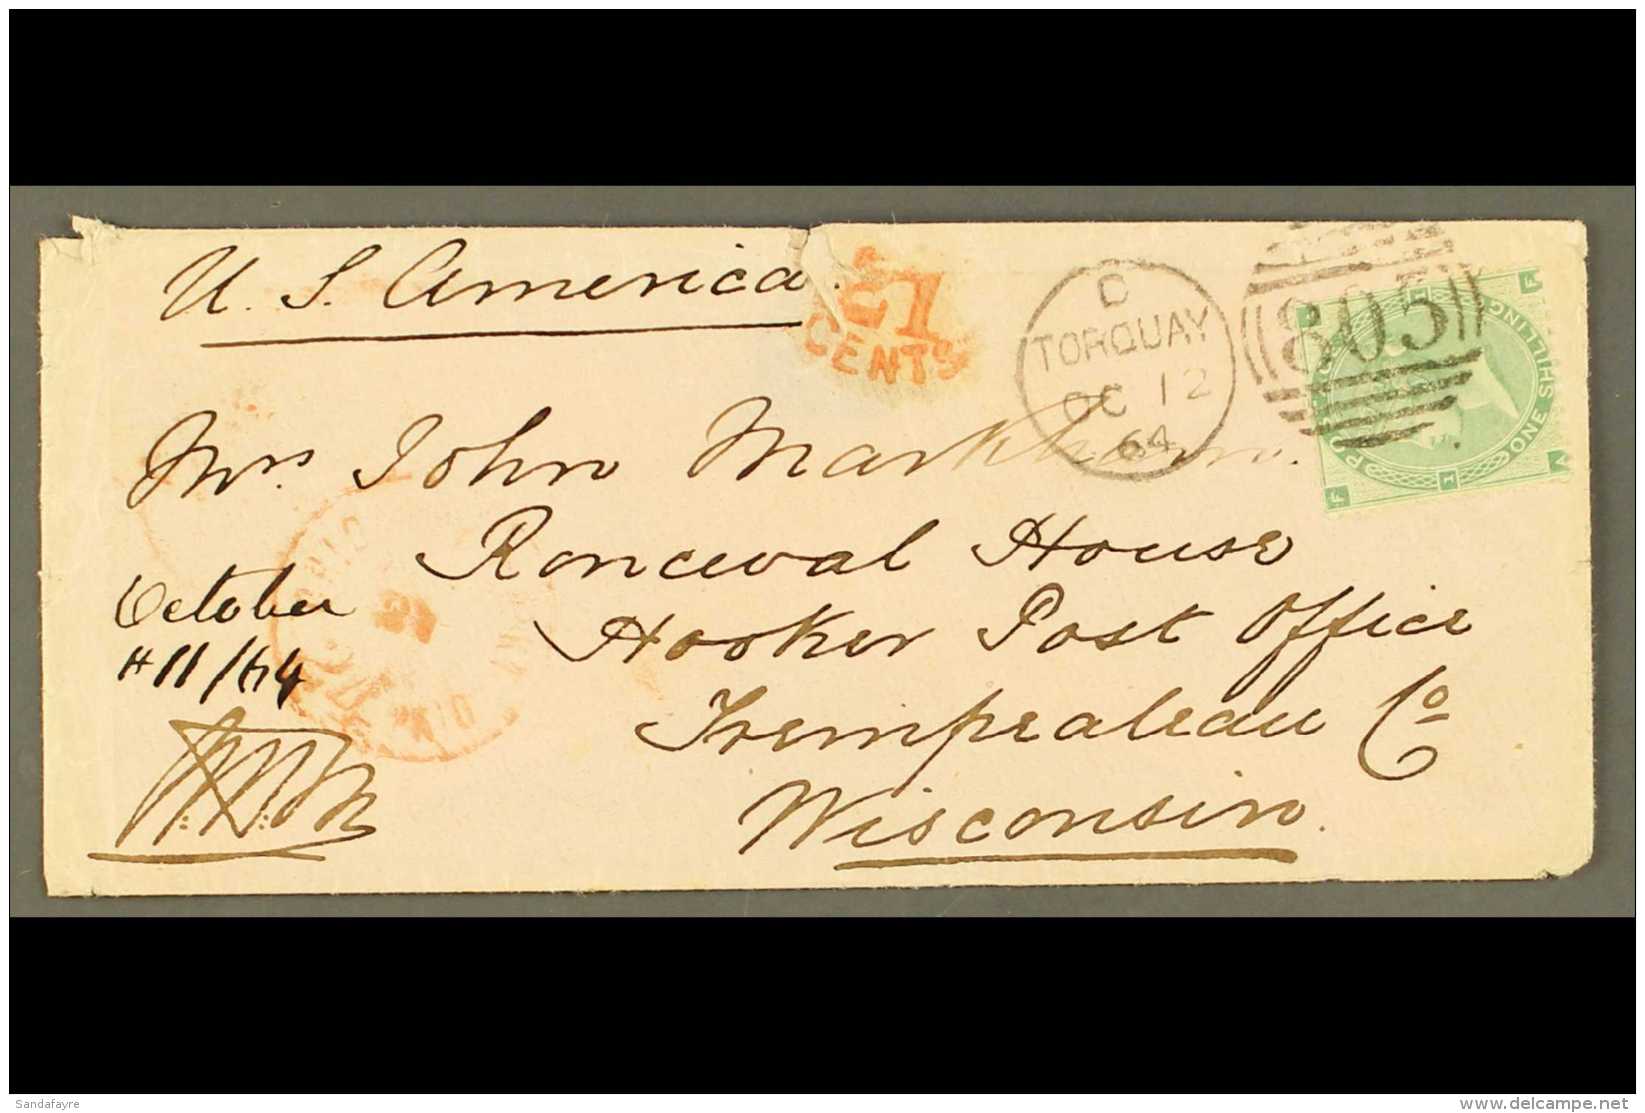 U. S. America.
21
CENTS
D
TORQUAY
OC 12
64
805
ONE SHILLING
F
F
A
1
1
Mrs John Markham.
Ronceval House
Hooker Post Office
Trempealeau Co
Wisconsin.
October
# 11/64
Sandafayre
delcampe.net